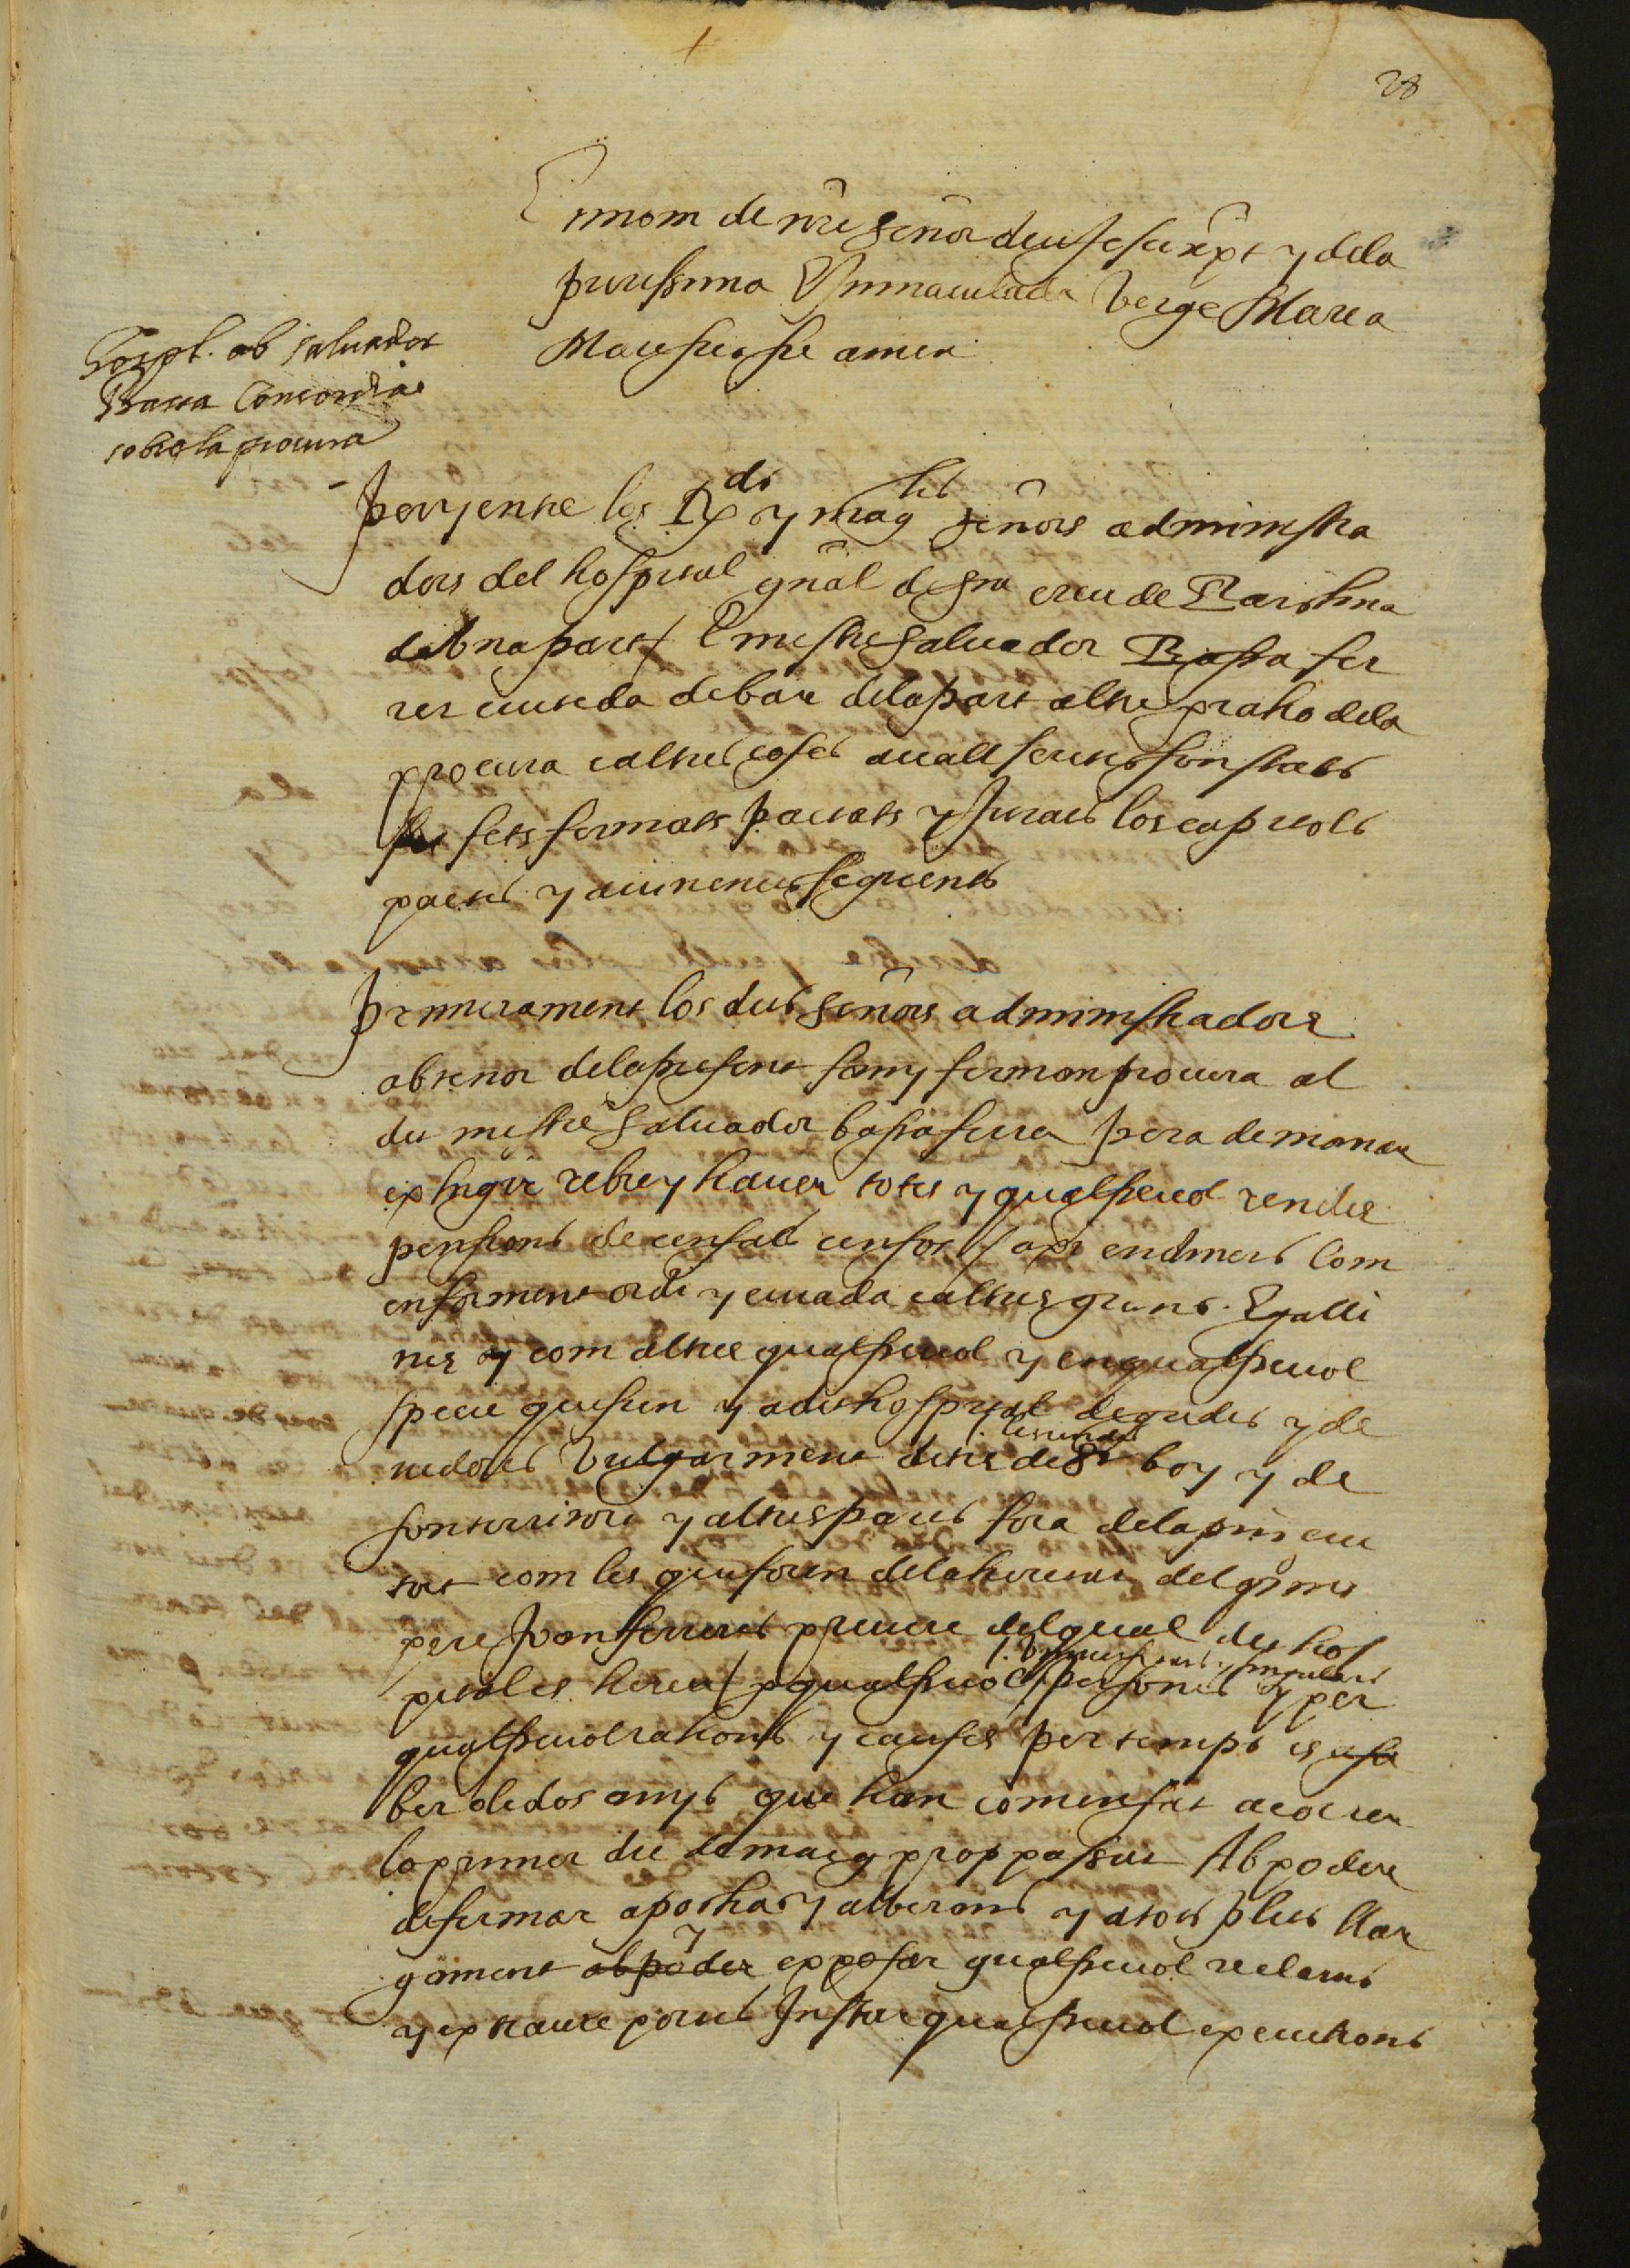 +
28
En nom de nre señor deu Jesu xpt y dela
purissima E Immaculada Verge Maria
Mare sua sie amen
Hospl. ab saluador
Bassa Concordia
sobre la procura
Per y entre los Rds y maghs señors administra
dors del hospital gñal de sta creu de Barchna
de una part / E mestre Saluador Bassa fer
rer ciutada de bar dela part altre p raho dela
procura e altres coses auall scrites son stats
fets fermats pactats y Jurats los capitols
pactes y auinences seguents
Primerament los dits señors administradors
ab tenor dela present fan y ferman procura al
dit mestre Saluador bassa ferrer pera demanar
exhigir rebre y hauer totes y qualseuol rendes
pensions de censals censos / axi en diners Com
en forment ordi y ciuada e altres grans. E galli
nes y com altre qualseuol y en qualseuol
specie que sien y a dit hospital degudes y de
uedores Vulgarment dites les rendes de St boy y de
son territori y altres parts fora dela pnt ciu
tat com les que foren dela heretat del qm
pere Joan ferreres preuere del qual dit hos
pital es hereu / p qualseuol / Vniuersitats y singulars persones y per
qualseuol rahons y causes per temps es a sa
ber de dos anys que han comensat a correr
lo primer die de maig prop passat Ab poder
de fermar apochas y albarans y a tots plets llar
gament ab poder y exposar qualseuol reclams
y exteaure por tes Instar qualseuol executions